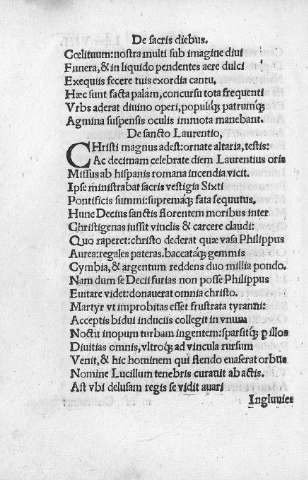 De sacris diebus.
Cœlituum: nostra multi sub imagine diui
Funera, & in liquido pendentes aere dulci
Exequiis fecere tuis exordia cantu,
Hæc sunt facta palam, concursu tota frequenti
Vrbs aderat diuino operi, populiq; patrumq;
Agmina suspensis oculis immota manebant.
De sancto Laurentio,
CHristi magnus adest: ornate altaria, testis:
Ac decimam celebrate diem Laurentius oris
Missus ab hispanis romana incendia vicit.
Ipse ministrabat sacris vestigia Sixti
Pontificis summi: supremaq; fata sequutus.
Hunc Decius sanctis florentem moribus inter
Christigenas iussit vinclis & carcere claudi:
Quo raperet: christo dederat quæ vasa Philippus
Aurea: regales pateras, baccataq; gemmis
Cymbia, & argentum reddens duo millia pondo.
Nam dum se Decii furias non posse Philippus
Euitare videt: donauerat omnia christo.
Martyr vt improbitas esset frustrata tyranni:
Acceptis bidui induciis collegit in vnum
Noctu inopum turbam ingentem: sparsitq; per illos
Diuitias omnis, vltroq; ad vincula rursum
Venit, & hic hominem qui flendo euaserat orbus
Nomine Lucillum tenebris curauit ab actis.
Ast vbi delusam regis se vidit auari
Ingluuies